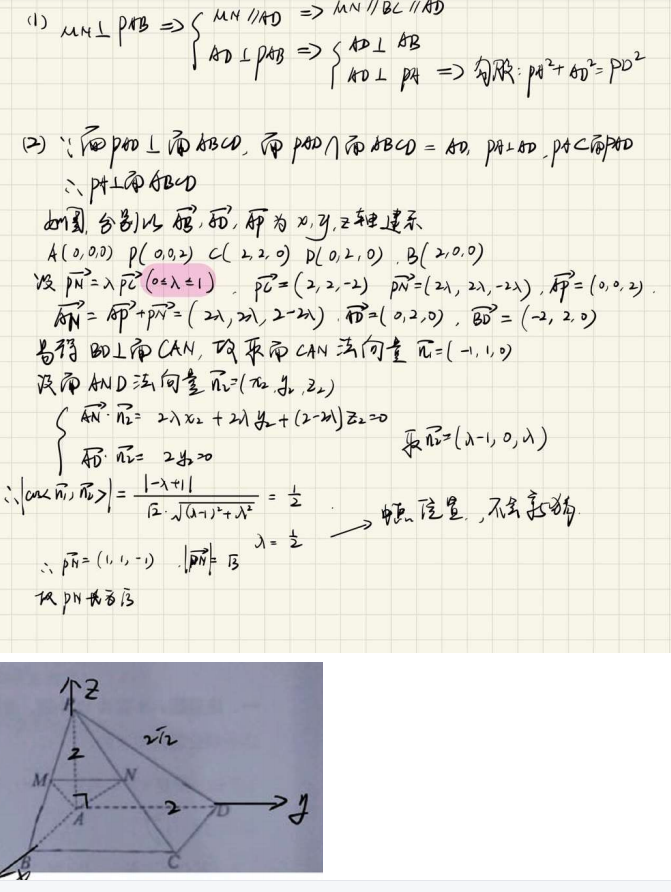 (1) MN⊥PAB ⇒ { MN∥AD ⇒ MN∥BC∥AD
AD⊥PAB ⇒ { AD⊥AB
AD⊥PA ⇒ 勾股: PA²+AD²=PD²
(2) ∵面PAD⊥面ABCD, 面PAD∩面ABCD=AD, PA⊥AD, PA⊂面PAD
∴PA⊥面ABCD
如图, 分别以 AB→, AD→, AP→ 为 x, y, z 轴建系
A(0,0,0) P(0,0,2) C(2,2,0) D(0,2,0). B(2,0,0)
设 PN→=λPC→ (0≤λ≤1). PC→=(2,2,-2) PN→=(2λ, 2λ, -2λ), AP→=(0,0,2).
AN→=AP→+PN→=(2λ, 2λ, 2-2λ). AD→=(0,2,0), BD→=(-2,2,0)
易得 BD⊥面CAN, 故取面CAN法向量 n₁→=(-1,1,0)
设面AND法向量 n₂→=(x₂, y₂, z₂)
{ AN→·n₂→=2λx₂+2λy₂+(2-2λ)z₂=0
AD→·n₂→=2y₂=0
取n₂→=(λ-1, 0, λ)
∴|cos<n₁→, n₂→>|=|-λ+1|/(√2·√((λ-1)²+λ²))=1/2
λ=1/2
→ 位置, 不
∴PN→=(1,1,-1) |PN→|=√3
故PN长为√3
z
P
2√2
2
M
N
A
2
D
y
B
C
x